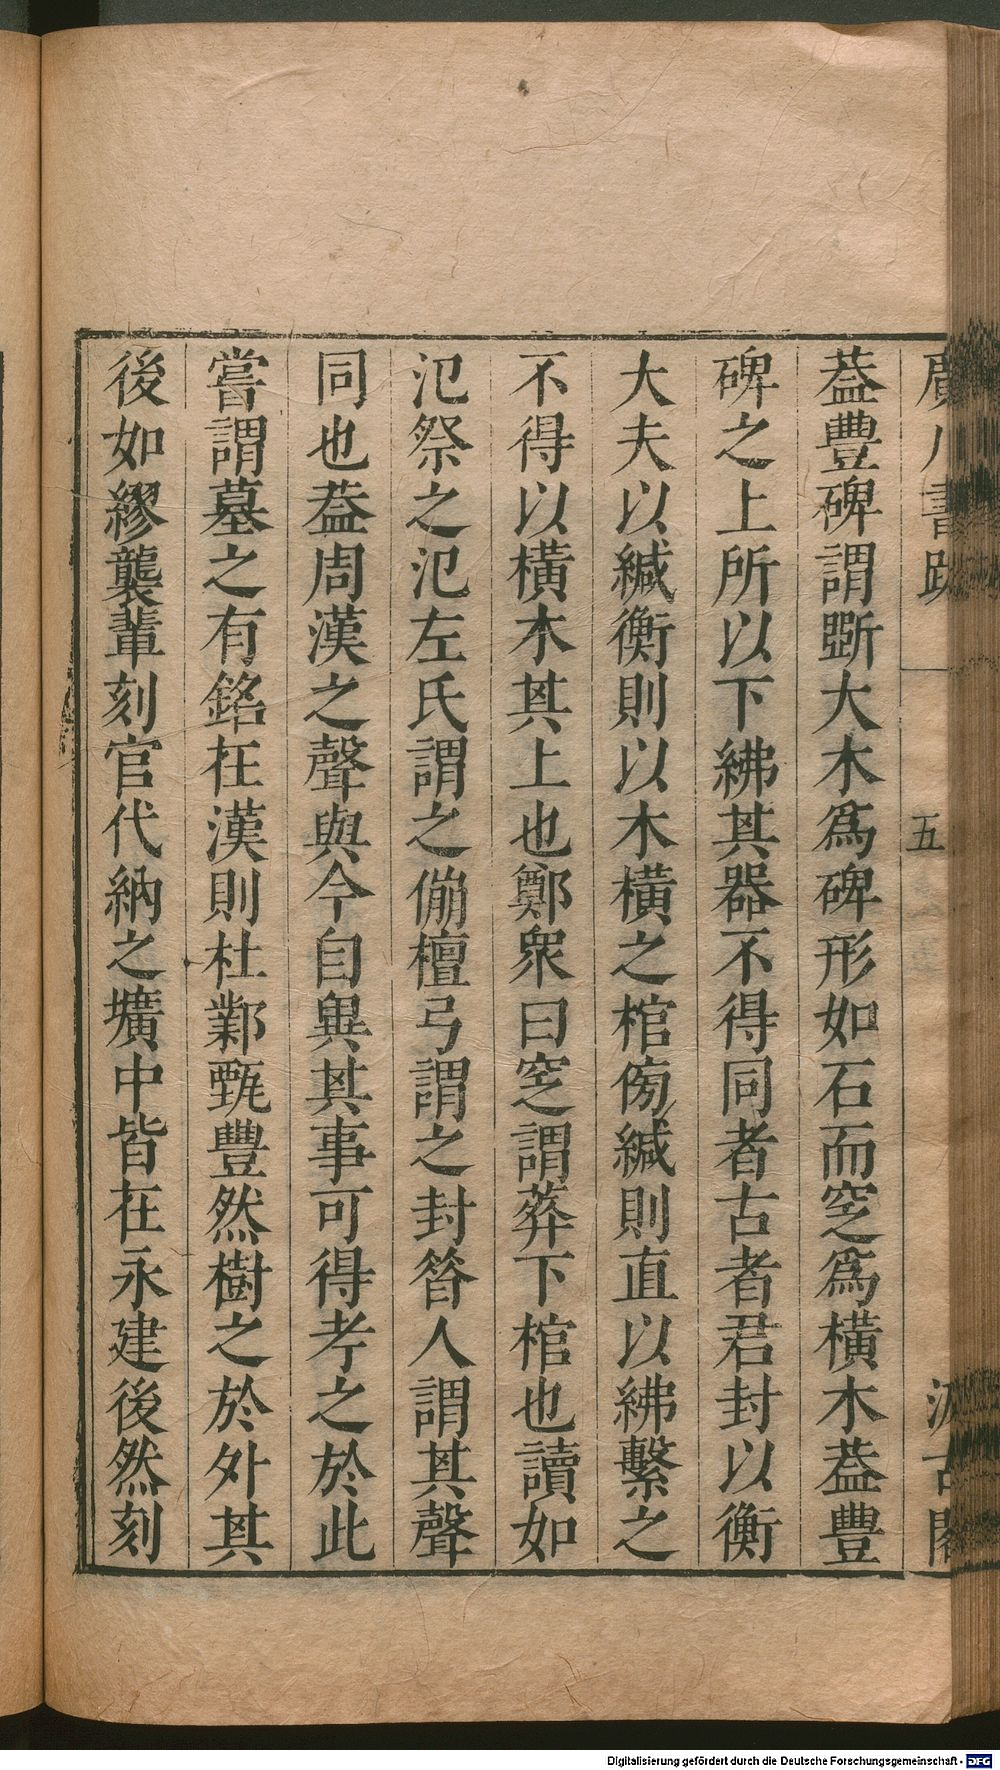 廣川書跋 五 汲古閣
葢豐碑謂斲大木爲碑形如石而空之爲橫木葢豐
碑之上所以下紼其器不得同者古者君封以衡
大夫以緘衡則以木橫之棺傍緘則直以紼繫之
不得以橫木其上也鄭衆曰窆謂葬下棺也讀如
氾祭之氾左氏謂之傰檀弓謂之封答人謂其聲
同也葢周漢之聲與今自異其事可得考之於此
嘗謂墓之有銘在漢則杜鄴甄豐然樹之於外其
後如繆襲輩刻官代納之壙中皆在永建後然刻
Digitalisierung gefördert durch die Deutsche Forschungsgemeinschaft - DFG